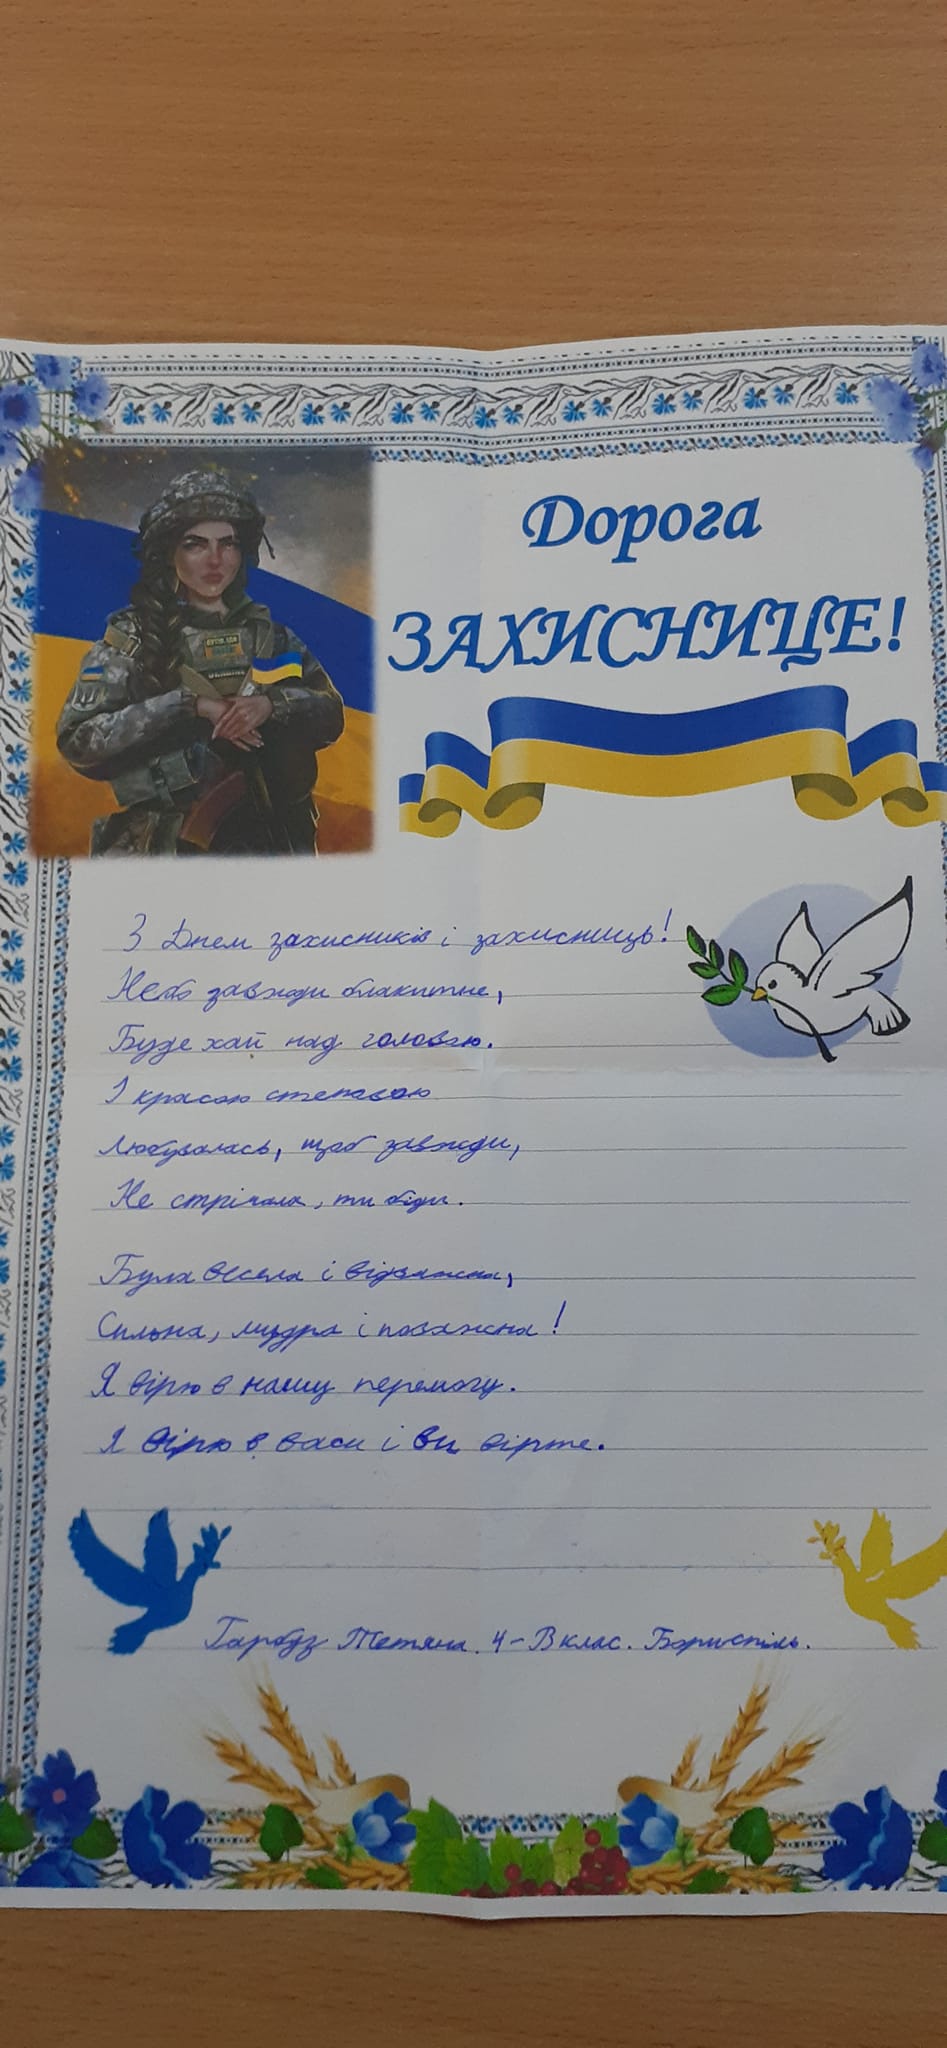 Дорога
ЗАХИСНИЦЕ!
UKRAINE
З Днем захисників і захисниць!
Небо завжди блакитне,
Буде хай над головою.
І красою степовою
Любувалась, щоб завжди,
Не стрічала, ти біди.
Була весела і відважна,
Сильна, мудра і поважна!
Я вірю в нашу перемогу.
Я вірю в васи і ви вірте.
Гарбуз Тетяна. 4-В клас. Бориспіль.